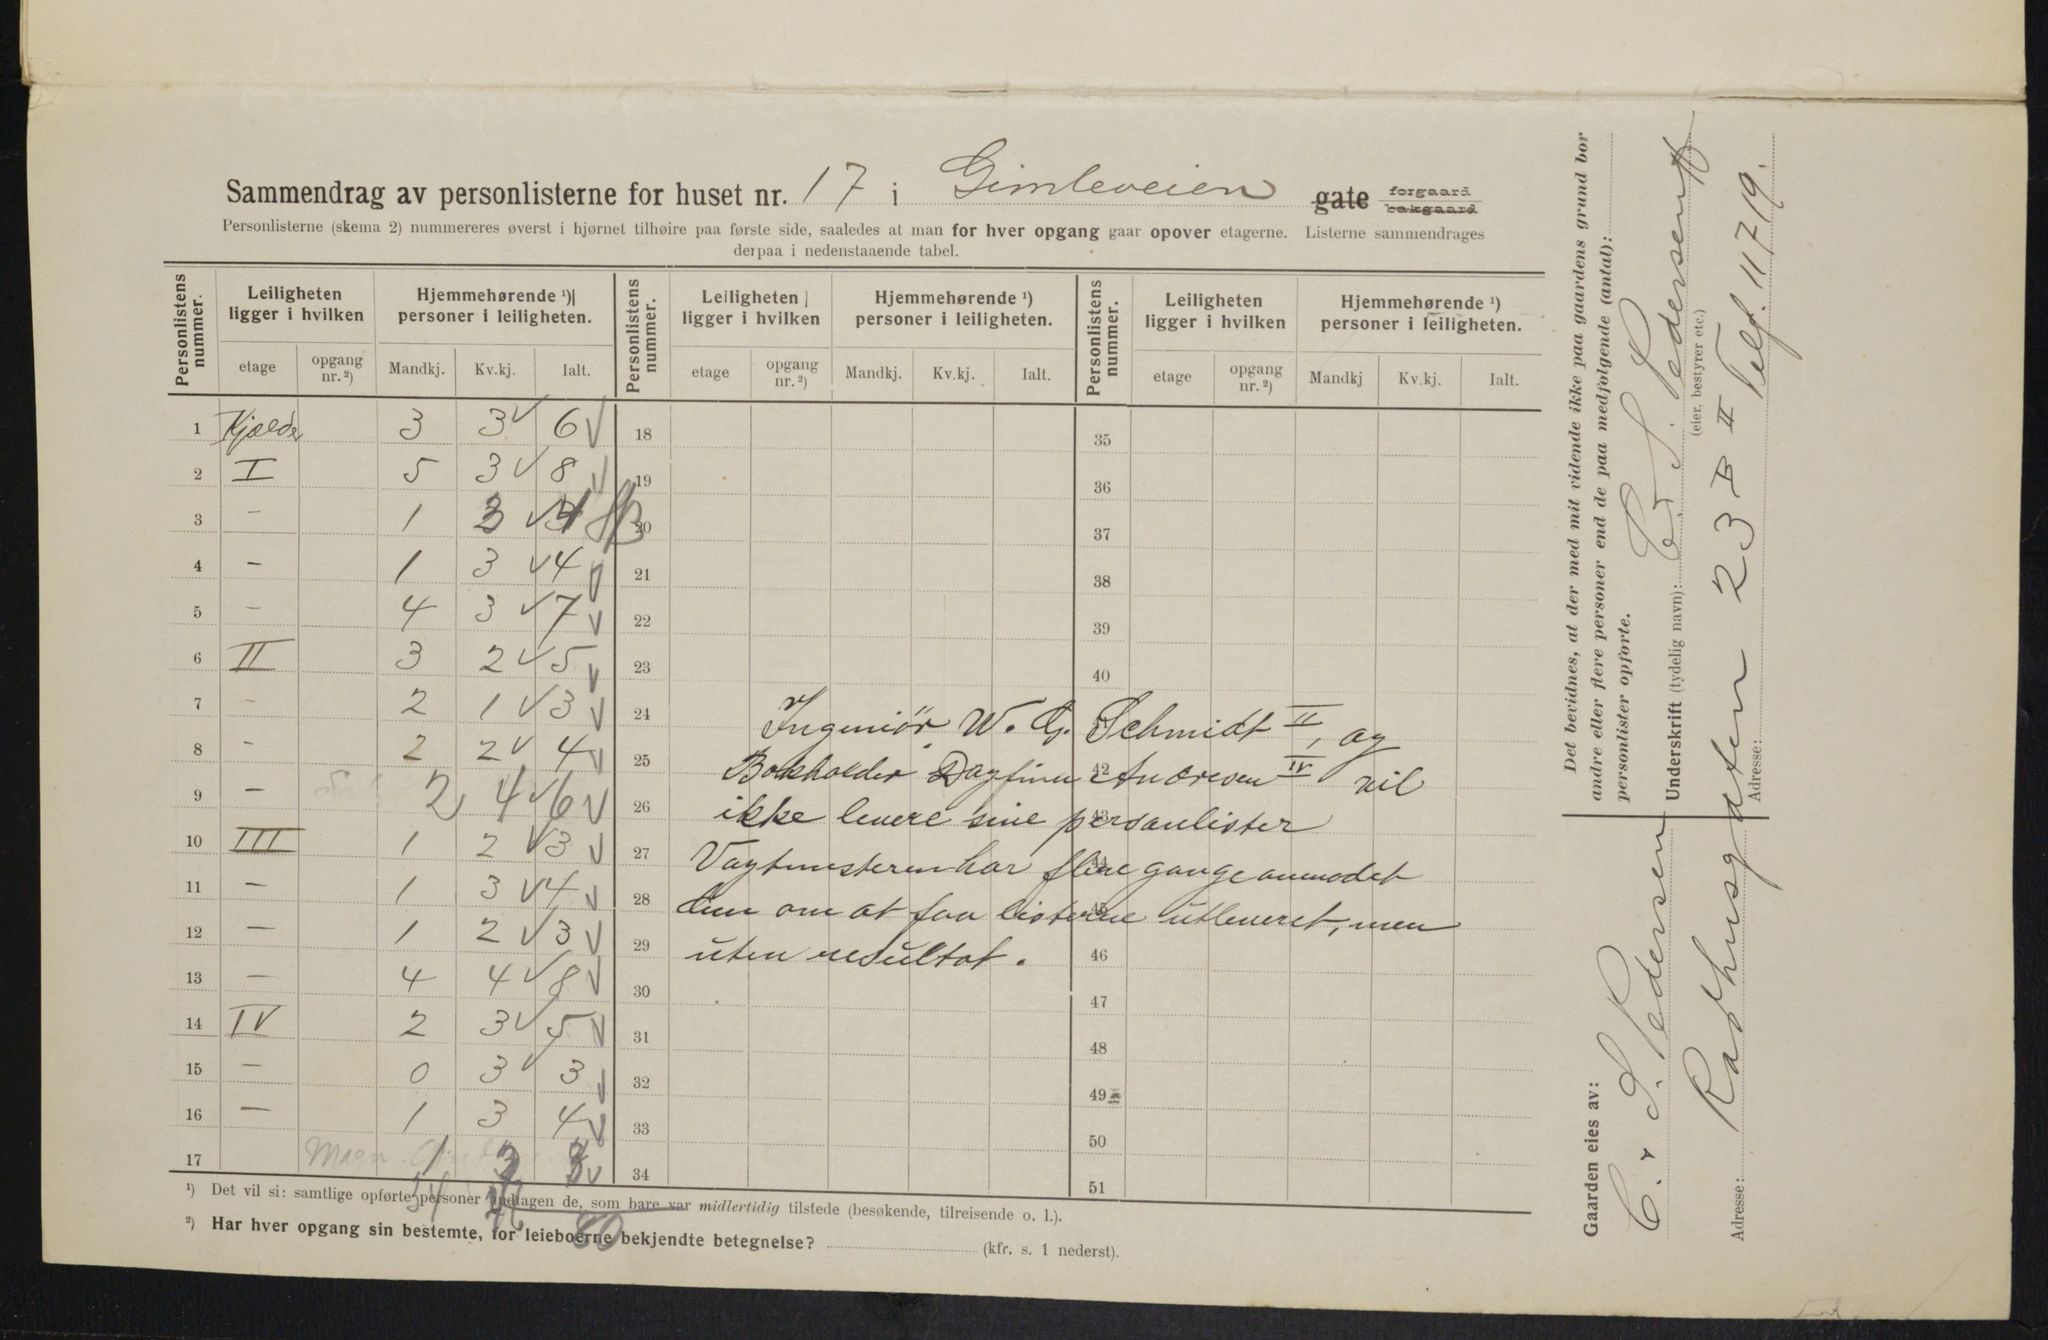 Sammendrag av personlisterne for huset nr. 17 i Gimleveien gate forgaard bakgaard
Personlisterne (skema 2) nummereres øverst i hjørnet tilhøire paa første side, saaledes at man for hver opgang gaar opover etagerne. Listerne sammendrages
derpaa i nedenstaaende tabel.
Personlistens nummer. Leiligheten ligger i hvilken Hjemmehørende ¹) personer i leiligheten. Personlistens nummer. Leiligheten ligger i hvilken Hjemmehørende ¹) personer i leiligheten. Personlistens nummer. Leiligheten ligger i hvilken Hjemmehørende ¹) personer i leiligheten.
etage opgang nr. ²) Mandkj. Kv.kj. Ialt. etage opgang nr. ²) Mandkj. Kv.kj. Ialt. etage opgang nr. ²) Mandkj Kv.kj. Ialt.
1 Kjælder 3 3 6 18 35
2 I 5 3 8 19 36
3 - 1 3 4 20 37
4 - 1 3 4 21 38
5 - 4 3 7 22 39
6 II 3 2 5 23 40
7 - 2 1 3 24
8 - 2 2 4 25 42
9 - 2 4 6 26 43
10 III 1 2 3 27 44
11 - 1 3 4 28 45
12 - 1 2 3 29 46
13 - 4 4 8 30 47
14 IV 2 3 5 31 48
15 - 0 3 3 32 49
16 - 1 3 4 33 50
17 1 34 51
34 80
Ingeniør W. G. Schmidt II, og
Bokholder Dagfinn Andresen IV vil
ikke levere sine personlister
Vagtmesteren har flere gange anmodet
dem om at faa listerne utleveret, men
uten resultat.
¹) Det vil si: samtlige opførte personer undtagen de, som bare var midlertidig tilstede (besøkende, tilreisende o. l.).
²) Har hver opgang sin bestemte, for leieboerne bekjendte betegnelse? (kfr. s. 1 nederst).
Det bevidnes, at der med mit vidende ikke paa gaardens grund bor
andre eller flere personer end de paa medfølgende (antal):
personlister opførte.
Underskrift (tydelig navn): C. S. Pedersen
(eier, bestyrer etc.)
Adresse:
Gaarden eies av:
C. S. Pedersen
Adresse: Raadhusgaten 23 B II Telf. 11719.